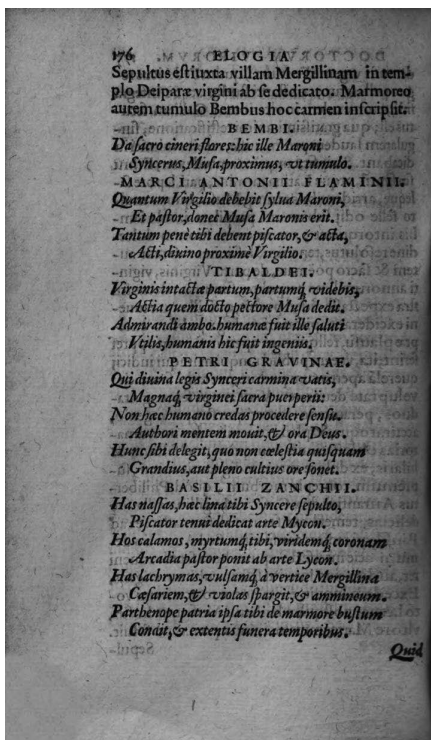 176 ELOGIA
Sepultus est iuxta villam Mergillinam in tem-
plo Deiparæ virgini ab se dedicato. Marmoreo
autem tumulo Bembus hoc carmen inscripsit.
BEMBI.
Da sacro cineri flores: hic ille Maroni
Syncerus, Musa, proximus, vt tumulo.
MARCI ANTONII FLAMINII.
Quantum Virgilio debebit sylua Maroni,
Et pastor, donec Musa Maronis erit.
Tantum penè tibi debent piscator, & acta,
Acti, diuino proxime Virgilio.
TIBALDEI.
Virginis intactæ partum, partumq́ videbis,
Actia quem docto pectore Musa dedit.
Admirandi ambo. humanæ fuit ille saluti
Vtilis, humanis hic fuit ingeniis.
PETRI GRAVINAE.
Qui diuina legis Synceri carmina vatis,
Magnaq́ virginei sacra puerperii:
Non hæc humano credas procedere sensu.
Authori mentem mouit, & ora Deus.
Hunc sibi delegit, quo non cœlestia quisquam
Grandius, aut pleno cultius ore sonet.
BASILII ZANCHII.
Has nassas, hæc lina tibi Syncere sepulto,
Piscator tenui dedicat arte Mycon.
Hos calamos, myrtumq́ tibi, viridemq́ coronam
Arcadia pastor ponit ab arte Lycon.
Has lachrymas, vulsamq́ à vertice Mergillina
Cæsariem, & violas spargit, & ammineum.
Parthenope patria ipsa tibi de marmore bustum
Condit, & extentis funera temporibus.
Quid